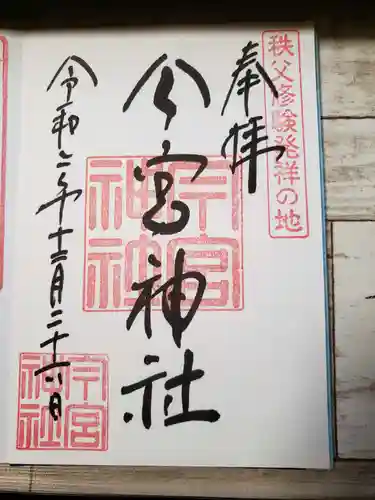 秩父修験発祥の地
奉拝
今宮神社
今宮
神社
令和六年十二月二十六日
今宮
神社